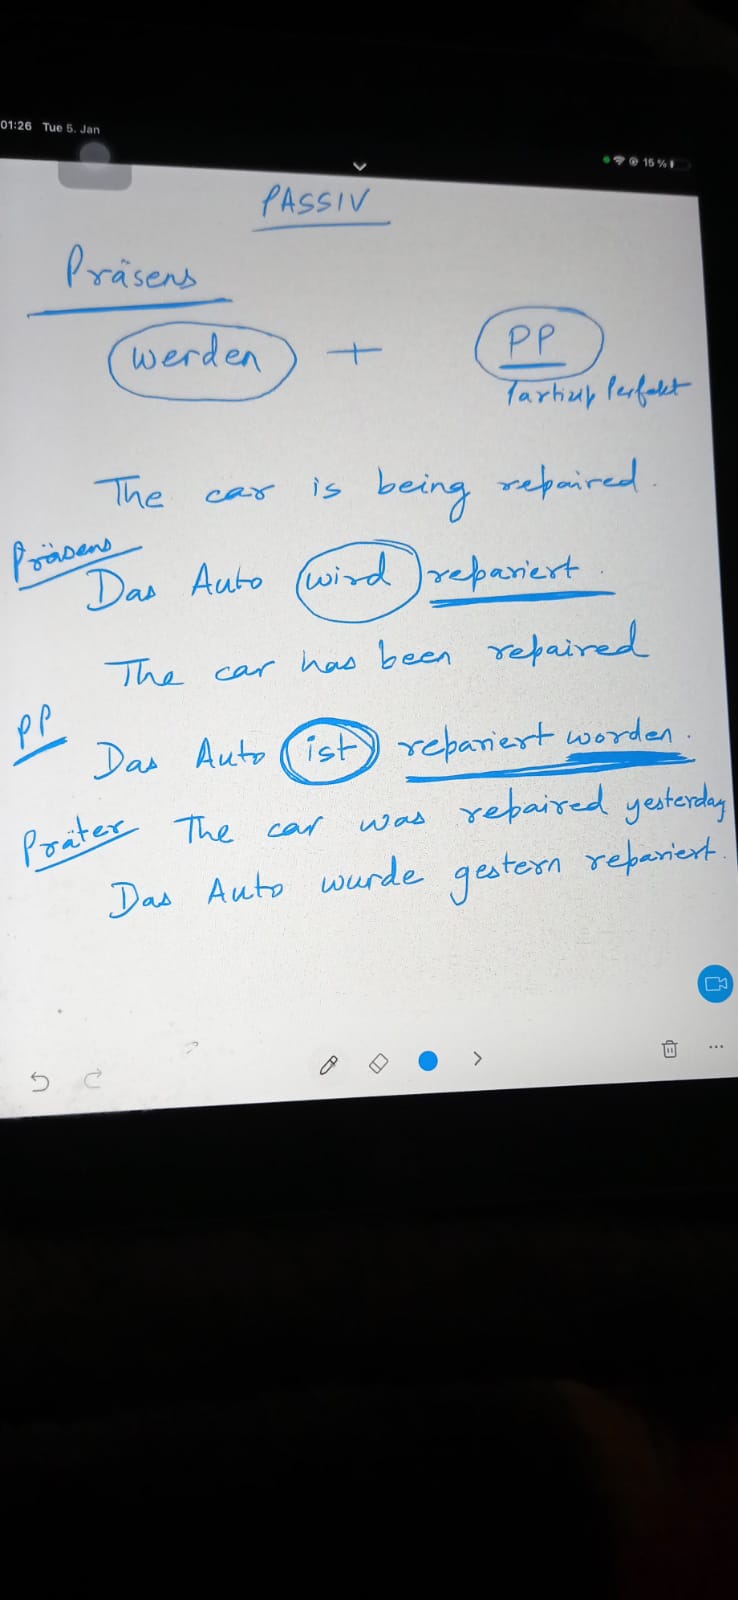 01:26 Tue 5. Jan
15 %
PASSIV
Präsens
werden + PP
Partizip Perfekt
The car is being repaired.
Präsens
Das Auto wird repariert.
The car has been repaired
PP
Das Auto ist repariert worden.
Präter The car was repaired yesterday
Das Auto wurde gestern repariert.